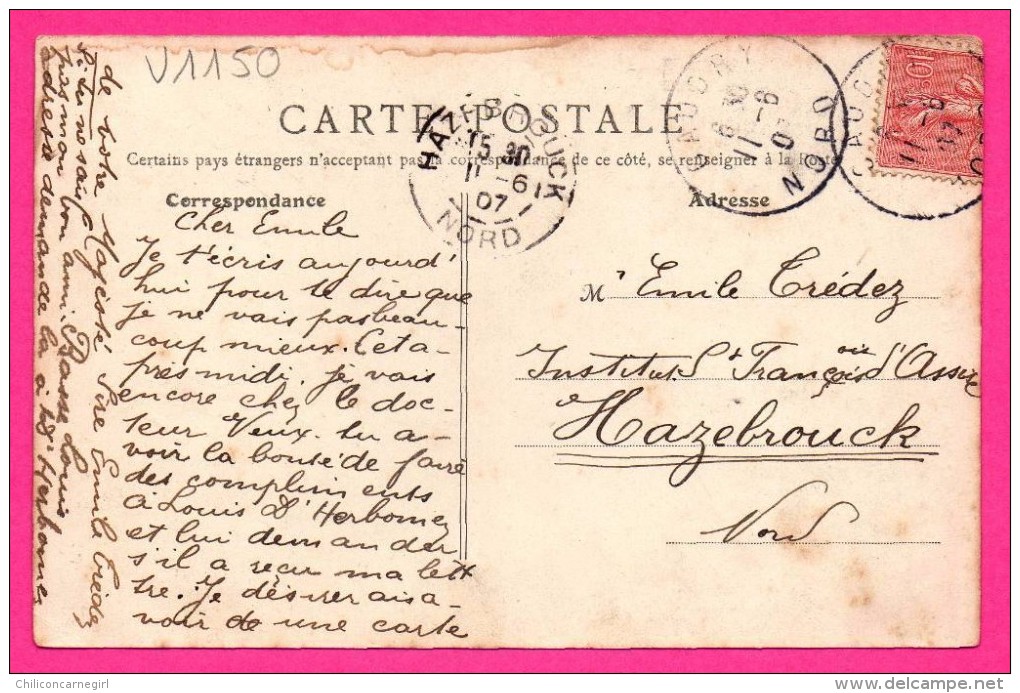 V1150
CARTE POSTALE
Certains pays étrangers n'acceptant pas la correspondance de ce côté, se renseigner à la Poste
Correspondance
Adresse
HAZEBROUCK
15 30
11 - 6
07
NORD
CAUDRY
6 30
11 - 6
07
NORD
10
Cher Emile
Je t'écris aujourd'
hui pour te dire que
je ne vais pas beau-
coup mieux. Cet a-
près midi, je vais
encore chez le doc-
teur Veux-tu a-
voir la bonté de faire
des compliments
à Louis D'Herbomez
et lui demander
s'il a reçu ma let
tre. Je désirerais a-
voir de une carte
de votre Majesté Sire Emile Trédez
Si tu ne sais
pas mon bon ami Louis
adresse demande la à Ls d'Herbomez
Mr Emile Trédez
Institut St François d'Assise
Hazebrouck
Nord
Chiliconcarnegirl
www.delcampe.net